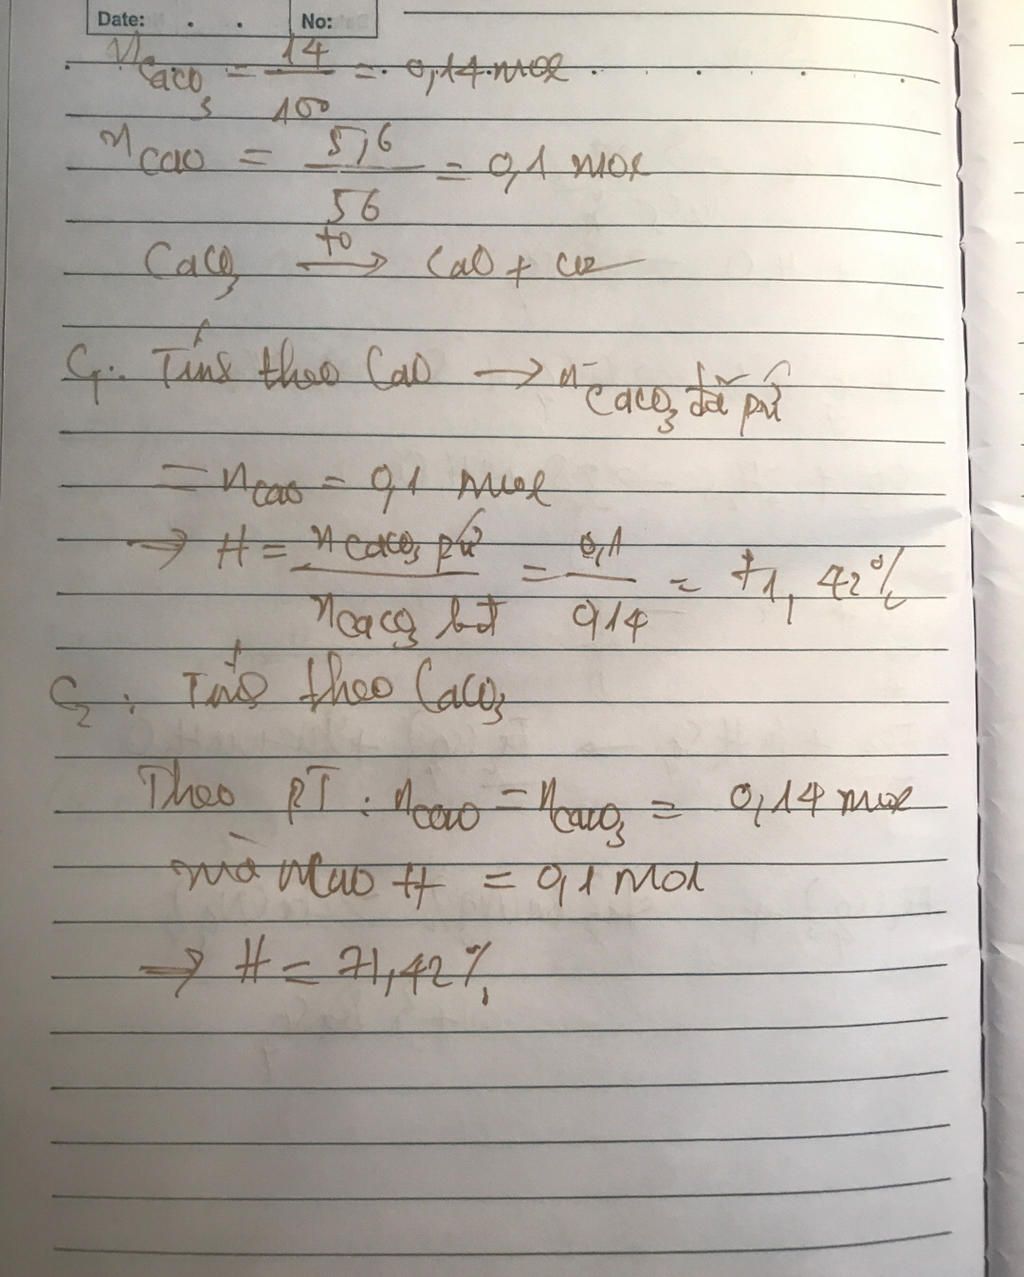 Date: . . No:
n CaCO3 = 14/100 = 0,14 mol
n CaO = 5,6/56 = 0,1 mol
CaCO3 →(t0) CaO + CO2
C1: Tính theo CaO → n CaCO3 đã pứ
= n CaO = 0,1 mol
→ H = n CaCO3 pứ / n CaCO3 bđ = 0,1/0,14 = 71,42%
C2: Tính theo CaCO3
Theo PT: n CaO = n CaCO3 = 0,14 mol
mà n CaO tt = 0,1 mol
→ H = 71,42%